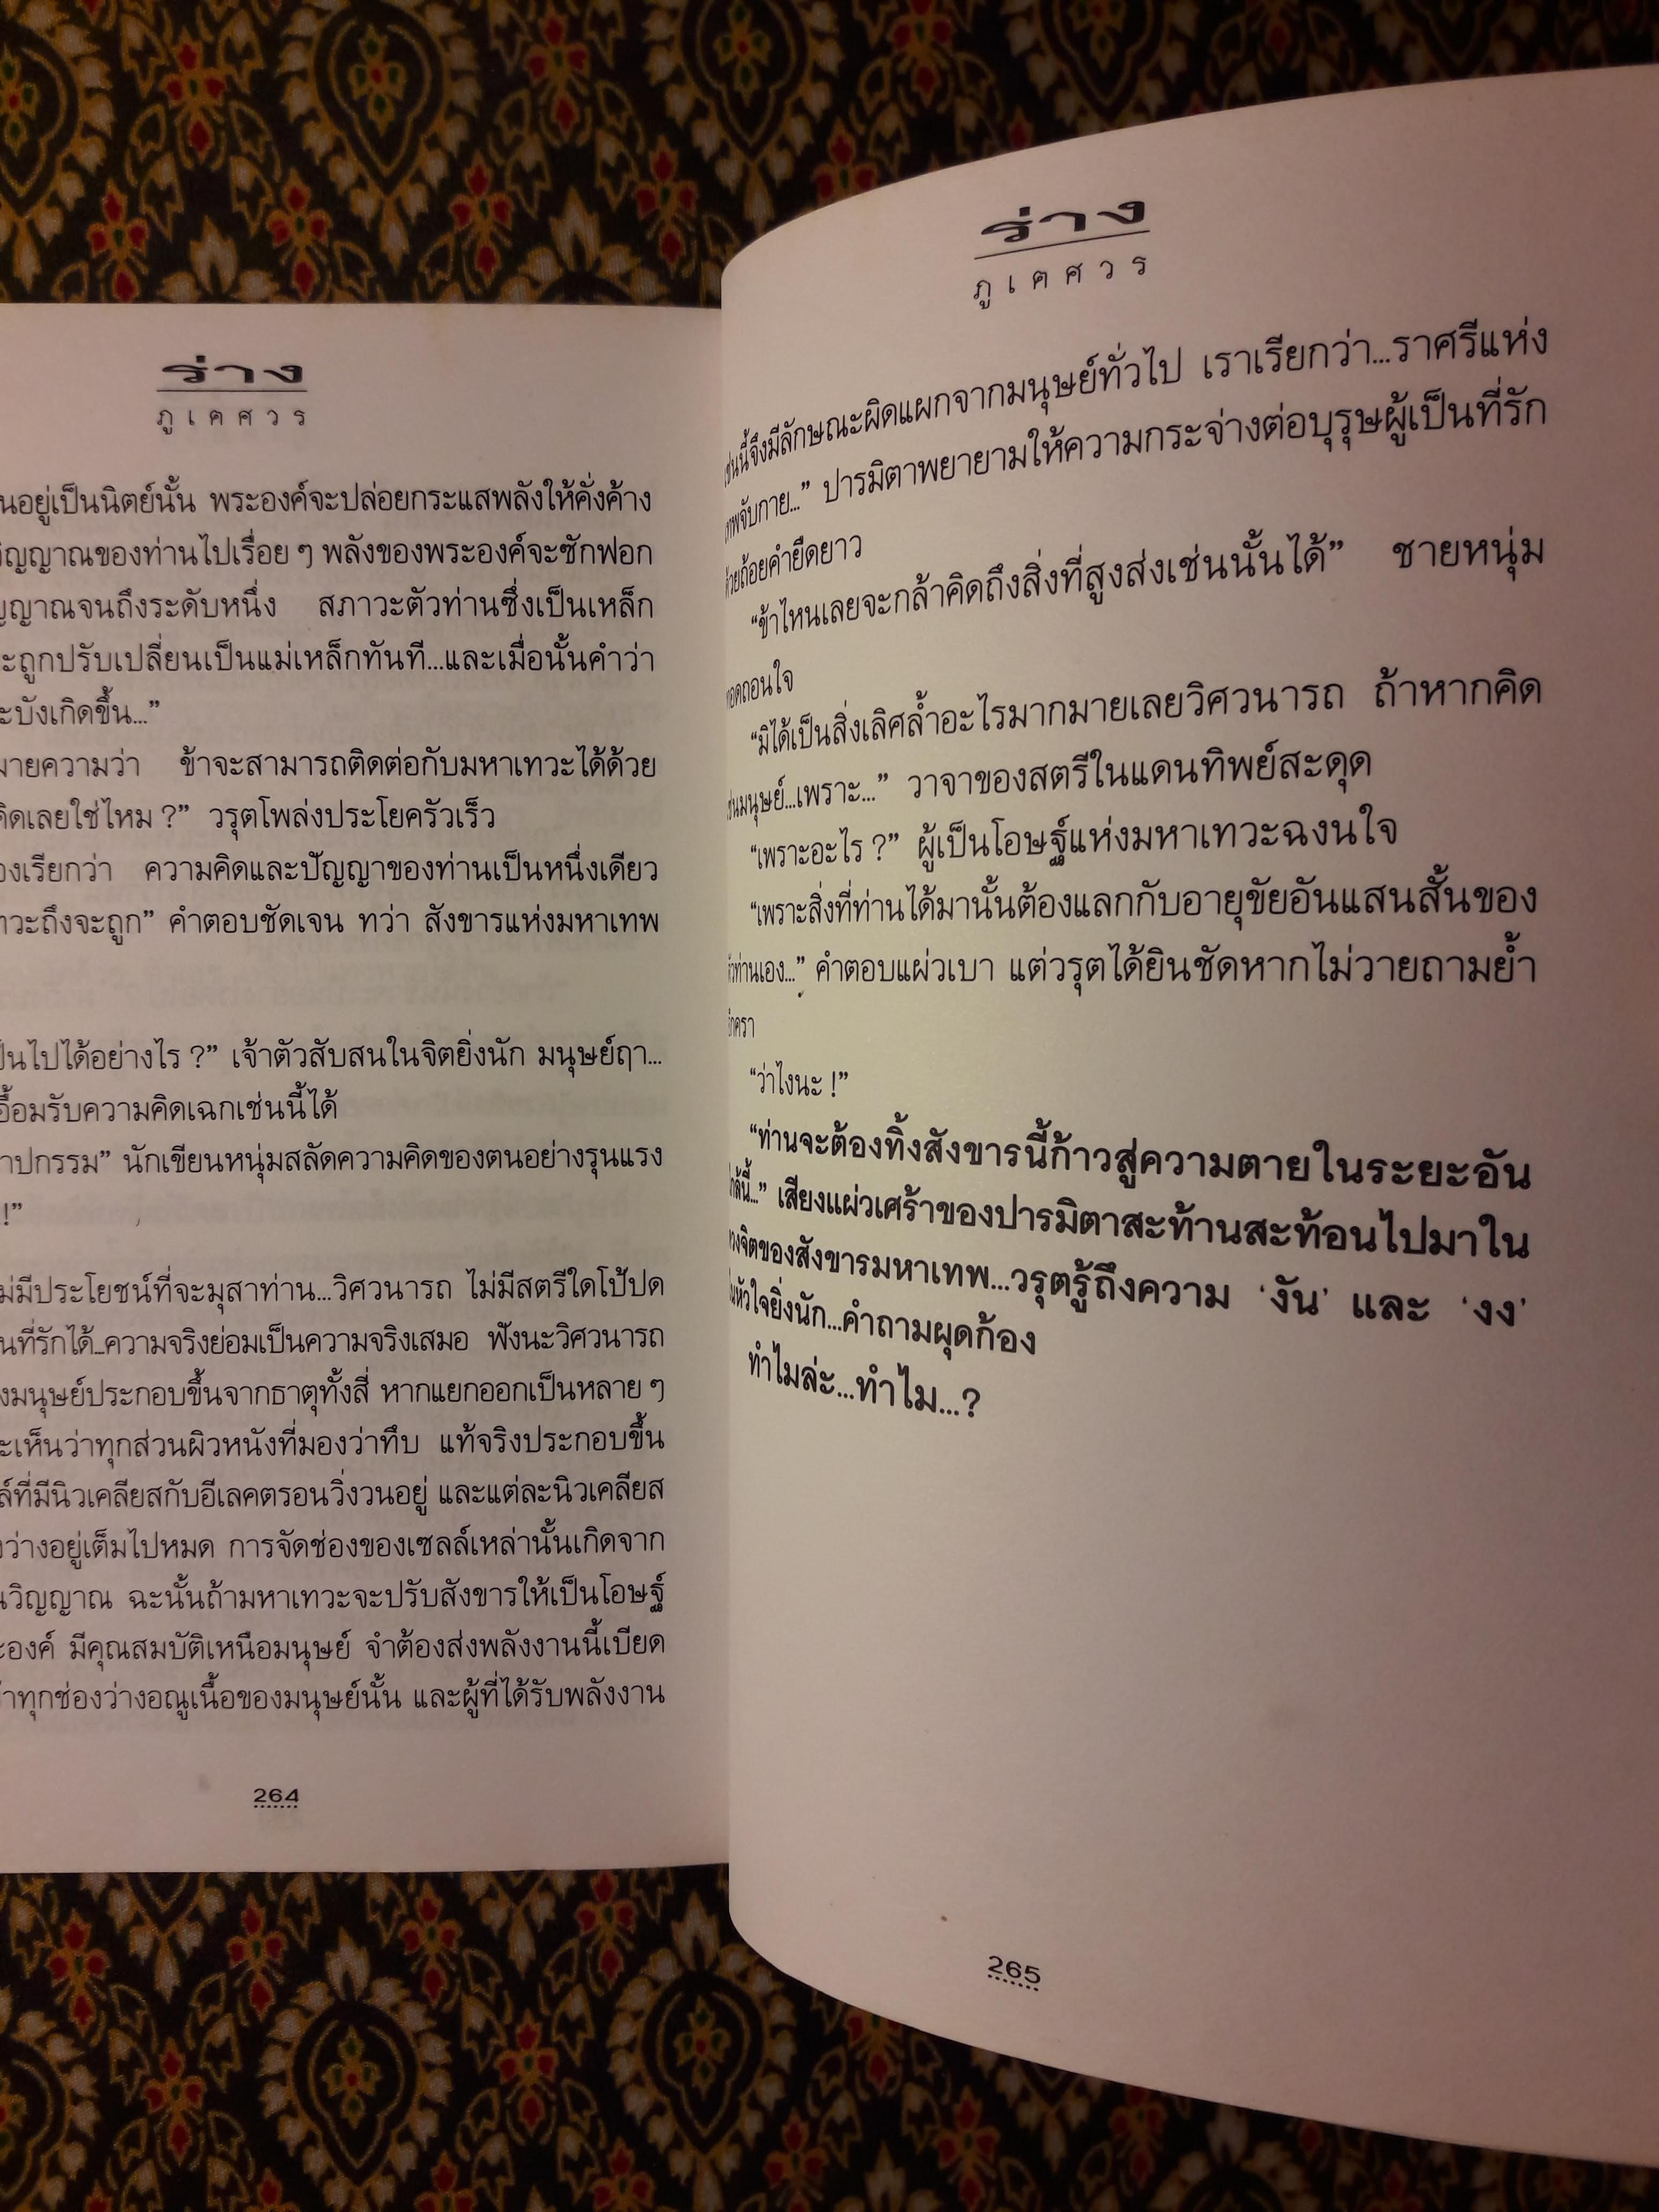 ร่าง
ภูเตศวร
นอยู่เป็นนิตย์นั้น พระองค์จะปล่อยกระแสพลังให้คั่งค้าง
วิญญาณของท่านไปเรื่อย ๆ พลังของพระองค์จะซักฟอก
ญญาณจนถึงระดับหนึ่ง สภาวะตัวท่านซึ่งเป็นเหล็ก
ะถูกปรับเปลี่ยนเป็นแม่เหล็กทันที...และเมื่อนั้นคำว่า
ะบังเกิดขึ้น..."
มายความว่า ข้าจะสามารถติดต่อกับมหาเทวะได้ด้วย
คิดเลยใช่ไหม ?" วรุตโพล่งประโยครัวเร็ว
องเรียกว่า ความคิดและปัญญาของท่านเป็นหนึ่งเดียว
าวะถึงจะถูก" คำตอบชัดเจน ทว่า สังขารแห่งมหาเทพ
ป็นไปได้อย่างไร ?" เจ้าตัวสับสนในจิตยิ่งนัก มนุษย์ฤา...
อื้อมรับความคิดเฉกเช่นนี้ได้
าปกรรม" นักเขียนหนุ่มสลัดความคิดของตนอย่างรุนแรง
!"
ม่มีประโยชน์ที่จะมุสาท่าน...วิศวนารถ ไม่มีสตรีใดโป้ปด
นที่รักได้...ความจริงย่อมเป็นความจริงเสมอ ฟังนะวิศวนารถ
งมนุษย์ประกอบขึ้นจากธาตุทั้งสี่ หากแยกออกเป็นหลาย ๆ
ะเห็นว่าทุกส่วนผิวหนังที่มองว่าทึบ แท้จริงประกอบขึ้น
ล์ที่มีนิวเคลียสกับอีเลคตรอนวิ่งวนอยู่ และแต่ละนิวเคลียส
งว่างอยู่เต็มไปหมด การจัดช่องของเซลล์เหล่านั้นเกิดจาก
นวิญญาณ ฉะนั้นถ้ามหาเทวะจะปรับสังขารให้เป็นโอษฐ์
ะองค์ มีคุณสมบัติเหนือมนุษย์ จำต้องส่งพลังงานนี้เบียด
ทุกช่องว่างอณูเนื้อของมนุษย์นั้น และผู้ที่ได้รับพลังงาน
264
ร่าง
ภูเตศวร
เช่นนี้จึงมีลักษณะผิดแผกจากมนุษย์ทั่วไป เราเรียกว่า...ราศรีแห่ง
เทพจับกาย..." ปารมิตาพยายามให้ความกระจ่างต่อบุรุษผู้เป็นที่รัก
ด้วยถ้อยคำยืดยาว
"ข้าไหนเลยจะกล้าคิดถึงสิ่งที่สูงส่งเช่นนั้นได้" ชายหนุ่ม
ทอดถอนใจ
"มิได้เป็นสิ่งเลิศล้ำอะไรมากมายเลยวิศวนารถ ถ้าหากคิด
เช่นมนุษย์...เพราะ..." วาจาของสตรีในแดนทิพย์สะดุด
"เพราะอะไร ?" ผู้เป็นโอษฐ์แห่งมหาเทวะฉงนใจ
"เพราะสิ่งที่ท่านได้มานั้นต้องแลกกับอายุขัยอันแสนสั้นของ
ตัวท่านเอง..." คำตอบแผ่วเบา แต่วรุตได้ยินชัดหากไม่วายถามย้ำ
อีกครา
"ว่าไงนะ !"
"ท่านจะต้องทิ้งสังขารนี้ก้าวสู่ความตายในระยะอัน
ใกล้นี้..." เสียงแผ่วเศร้าของปารมิตาสะท้านสะท้อนไปมาใน
ดวงจิตของสังขารมหาเทพ...วรุตรู้ถึงความ 'งัน' และ 'งง'
ในหัวใจยิ่งนัก...คำถามผุดก้อง
ทำไมล่ะ...ทำไม...?
265